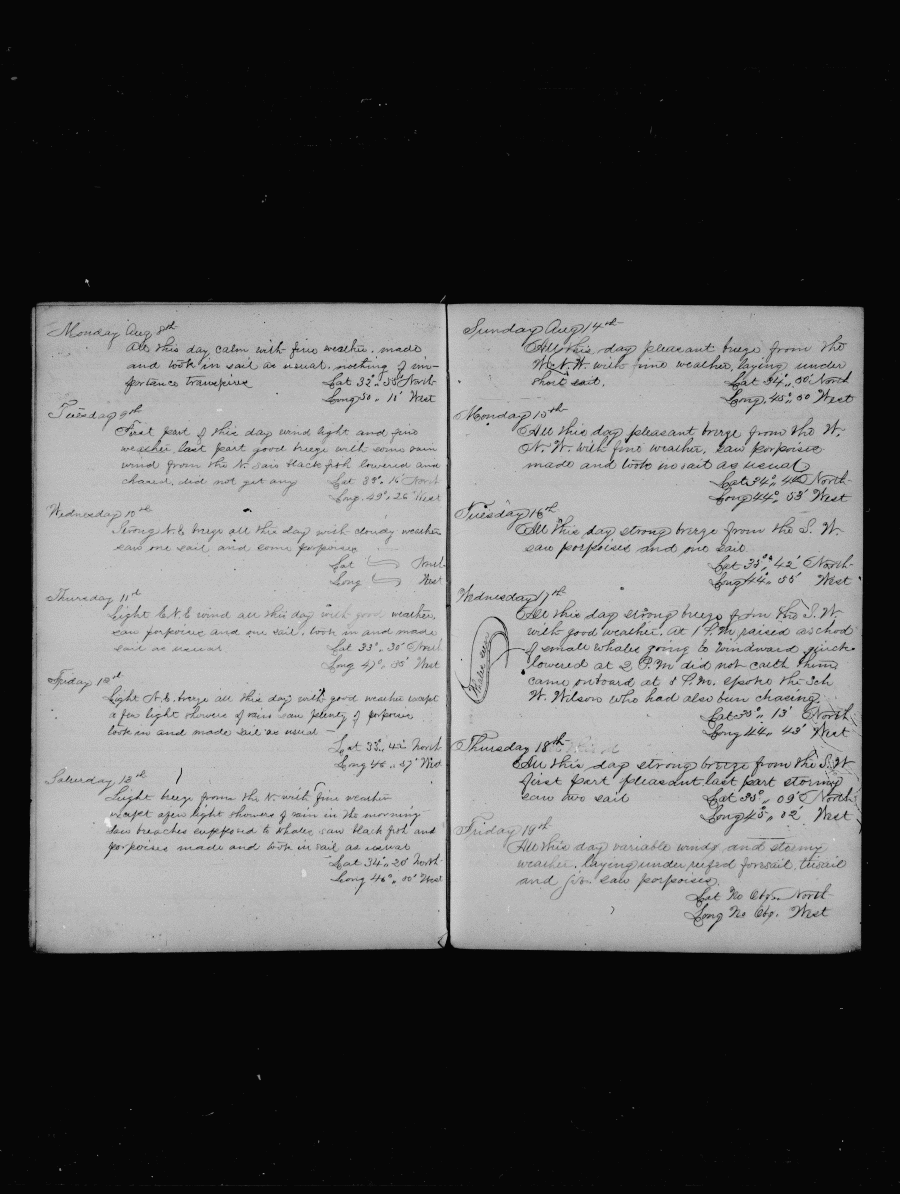 Monday Aug 8th
All this day calm with fine weather. made
and took in sail as usual. nothing of im-
portance transpires Lat 33°,, 55' North
Long 50,, 11' West
Tuesday 9th
First part of this day wind light and fine
weather last part good breeze with some rain
wind from the N. saw blackfish lowered and
chased, did not get any Lat 33°. 15' North
Long. 49°,, 26' West
Wednesday 10th
Strong N.E breeze all this day with cloudy weather
saw one sail and some porpoises
Lat North
Long West
Thursday 11th
Light E.N.E wind all this day with good weather,
saw porpoises and one sail. took in and made
sail as usual Lat 33°. 30' North
Long 47°,, 35' West
Friday 12th
Light N.E. breeze all this day with good weather except
a few light showers of rain saw plenty of porpoise
took in and made sail as usual
Lat 33°,, 42' North
Long 46,, 57' West
Saturday 13th
Light breeze from the N. with fine weather
except a few light showers of rain in the morning
saw breaches supposed to whales saw black fish and
porpoises made and took in sail as usual
Lat 34°,, 20' North
Long 46°,, 00' West
Sunday Aug 14th
All this day pleasant breeze from the
W.N.W. with fine weather, laying under
short sail. Lat 34°,, 50' North
Long, 45°,, 00' West
Monday 15th
All this day pleasant breeze from the W.
N.W. with fine weather, saw porpoises
made and took in sail as usual
Lat 34°,, 40' North
Long 44°,, 53' West
Tuesday 16th
All this day strong breeze from the S.W.
saw porpoises and one sail
Lat 35°,, 42' North
Long 44°,, 55' West
Wednesday 17th
All this day strong breeze from the S.W
with good weather. At 1 P.M raised a schod
of small whales going to windward quick
lowered at 2 P.M did not catch them
came onboard at 5 P.M. spoke the Sch
W. Wilson who had also been chasing
Lat 35°,, 13' North
Long 44,, 43' West
Whales seen
Thursday 18th
All this day strong breeze from the S.W
first part pleasant last part stormy
saw two sail Lat 35°,, 09' North
Long 45°,, 02' West
Friday 19th
All this day variable winds and stormy
weather. laying under reefed foresail, trisail
and jib. saw porpoises.
Lat No Obs. North
Long No Obs. West